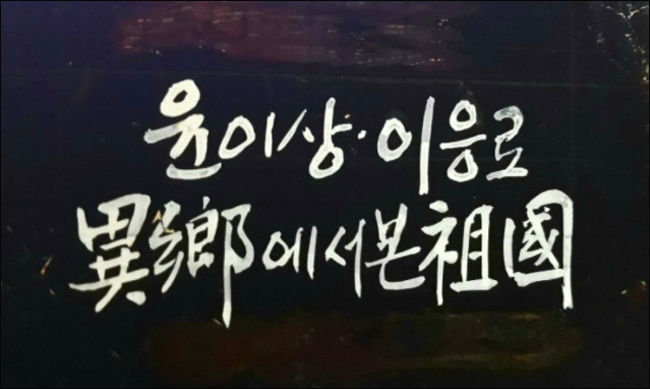 윤이상·이응로
異鄕에서본祖國